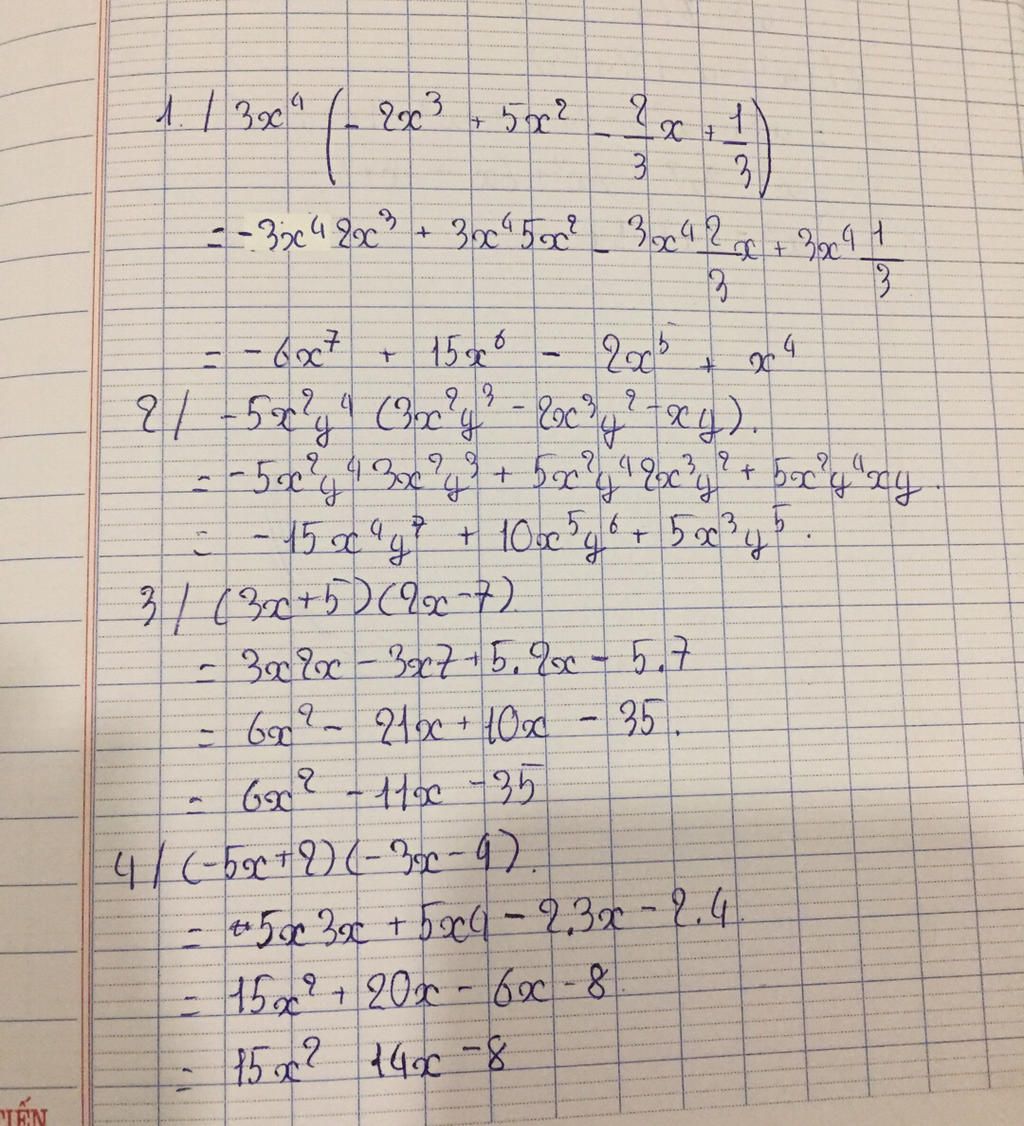 1./ 3x⁴ (- 2x³ + 5x² - 2/3 x + 1/3)
= -3x⁴ 2x³ + 3x⁴5x² - 3x⁴ 2/3 x + 3x⁴ 1/3
= -6x⁷ + 15x⁶ - 2x⁵ + x⁴
2/ -5x²y⁴ (3x²y³ - 2x³y² - xy).
= -5x²y⁴ 3x²y³ + 5x²y⁴ 2x³y² + 5x²y⁴xy.
= -15x⁴y⁷ + 10x⁵y⁶ + 5x³y⁵.
3/ (3x+5)(2x-7)
= 3x2x - 3x7 + 5.2x - 5.7
= 6x² - 21x + 10x - 35.
= 6x² - 11x - 35
4/ (-5x+2)(-3x-4).
= +5x 3x + 5x4 - 2.3x - 2.4
= 15x² + 20x - 6x - 8
= 15x² 14x - 8
TIẾN